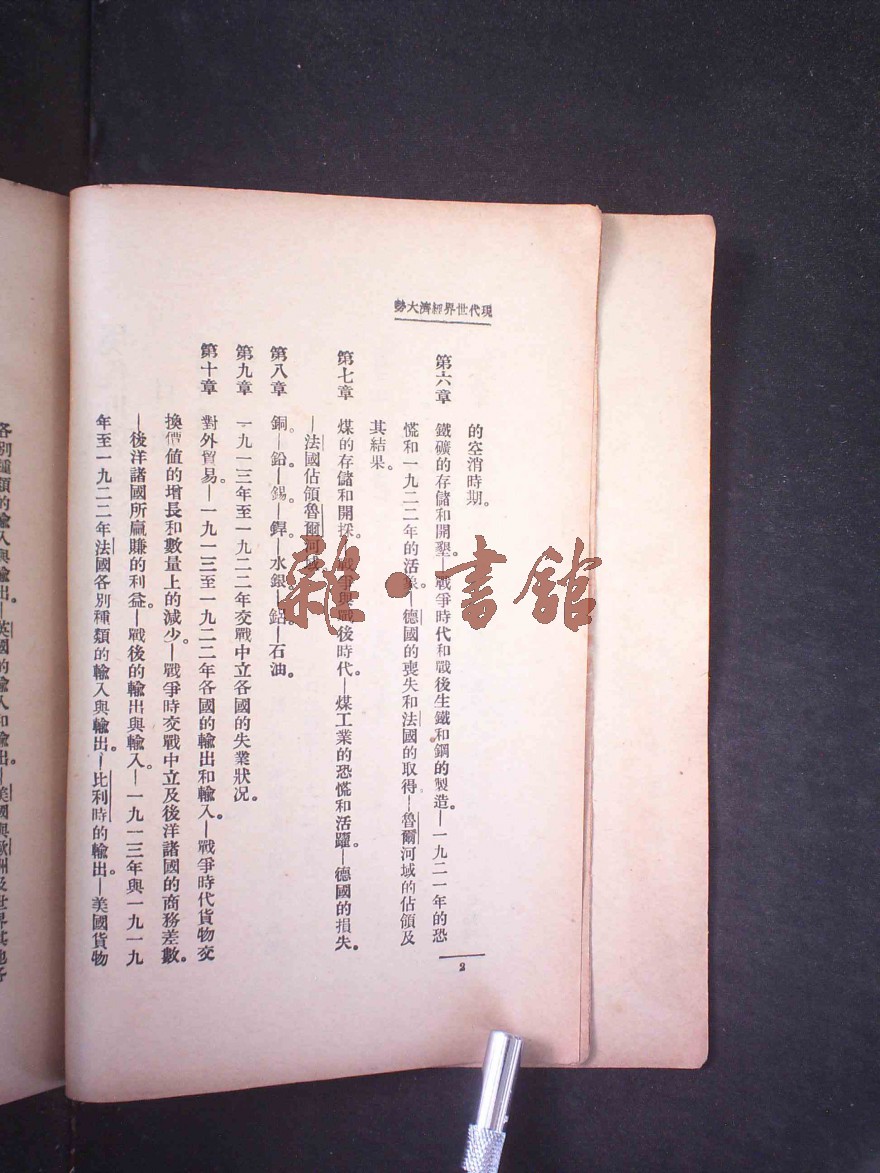 現代世界經濟大勢
的空消時期。
第六章 鐵礦的存儲和開墾。—戰爭時代和戰後生鐵和鋼的製造。—一九二一年的恐
慌和一九二二年的活躍。—德國的喪失和法國的取得—魯爾河域的佔領及
其結果。
第七章 煤的存儲和開採。—戰爭與戰後時代。—煤工業的恐慌和活躍。—德國的損失。
—法國佔領魯爾河域。
第八章 銅。—鉛。—錫。—鋅—水銀—鋁—石油。
第九章 一九一三年至一九二二年交戰中立各國的失業狀況。
第十章 對外貿易。—一九一三至一九二二年各國的輸出和輸入。—戰爭時代貨物交
換價值的增長和數量上的減少。—戰爭時交戰中立及後洋諸國的商務差數。
—後洋諸國所贏賺的利益。—戰後的輸出與輸入。—一九一三年與一九一九
年至一九二二年法國各別種類的輸入與輸出。—比利時的輸出—美國貨物
2
各別種類的輸入與輸出。—英國的輸入和輸出。—美國與歐洲及世界其他
雜·書館